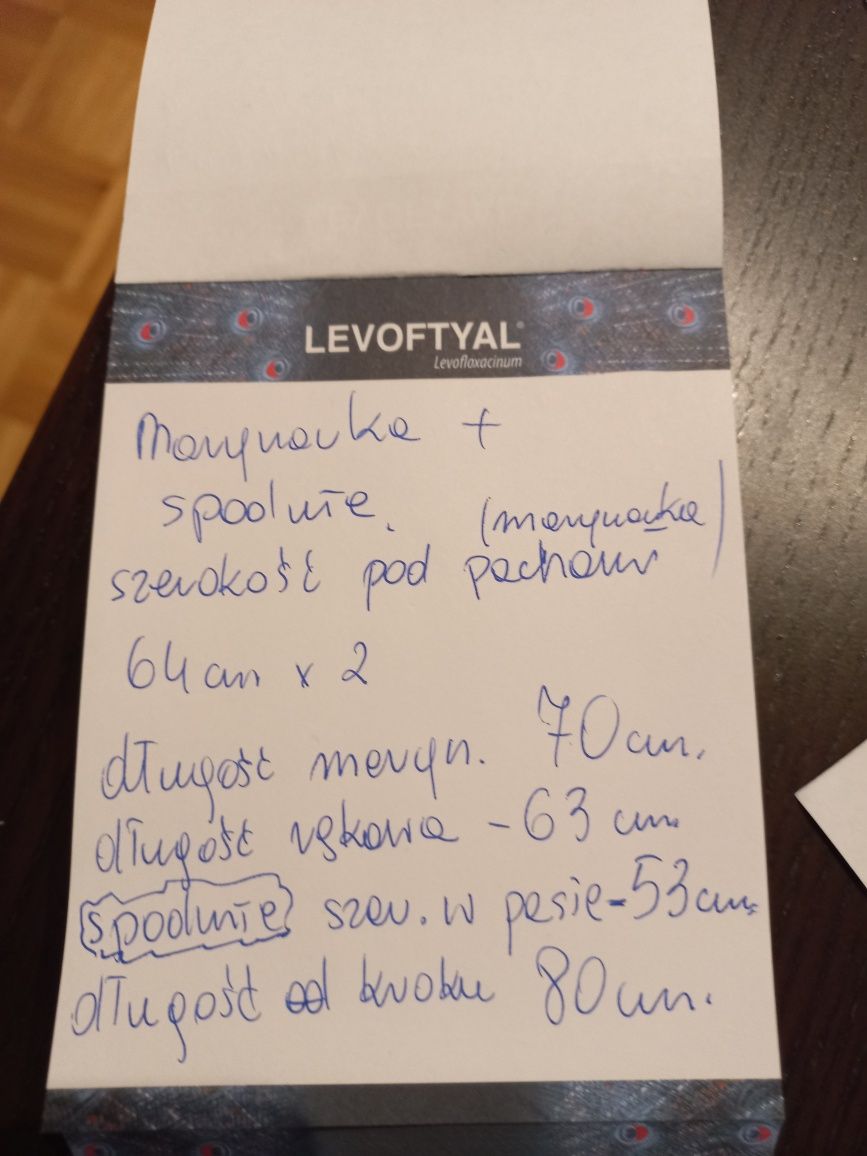 LEVOFTYAL®
Levofloxacinum
Marynarka +
spodnie. (marynarka)
szerokość pod pachami
64 cm x 2
długość maryn. 70 cm.
długość rękawa - 63 cm.
spodnie szer. w pasie - 53 cm.
długość od kroku 80 cm.